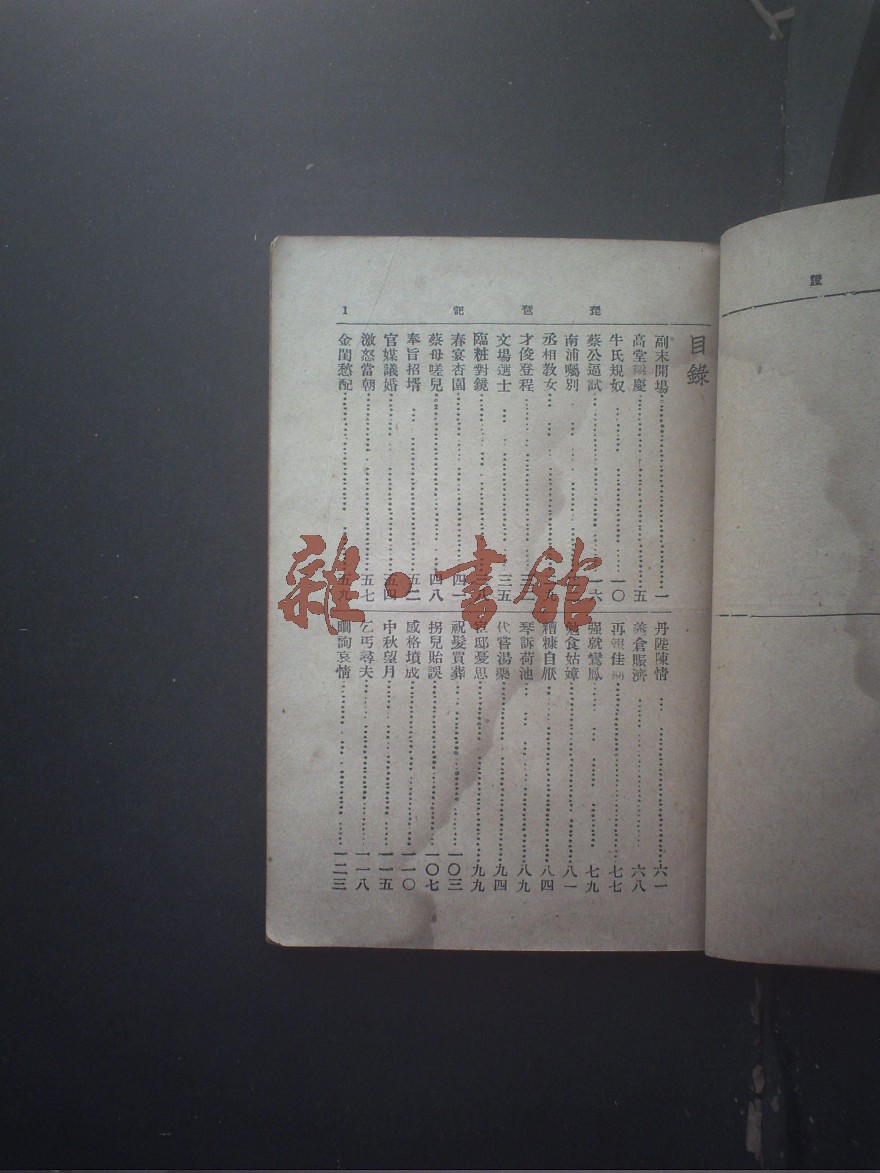 琵琶記
1
目錄
副末開場 一
高堂慶 五
牛氏規奴 一〇
蔡公逼試 一六
南浦囑別
丞相教女 九
才俊登程 三
文場選士 三五
臨粧對鏡
春宴杏園 四一
蔡母嗟兒 四八
奉旨招壻 五二
官媒議婚 五四
激怒當朝 五七
金閨愁配 五九
丹陛陳情 六一
倉賑濟 六八
再報佳 七七
强就鸞鳳 七九
勉食姑嫜 八一
糟糠自厭 八四
琴訴荷池 八九
代嘗湯藥 九四
宦邸憂思 九九
祝髮買葬 一〇三
拐兒貽誤 一〇七
感格墳成 一一〇
中秋望月 一一五
乞丐尋夫 一一八
瞷詢哀情 一二三
雜·書館